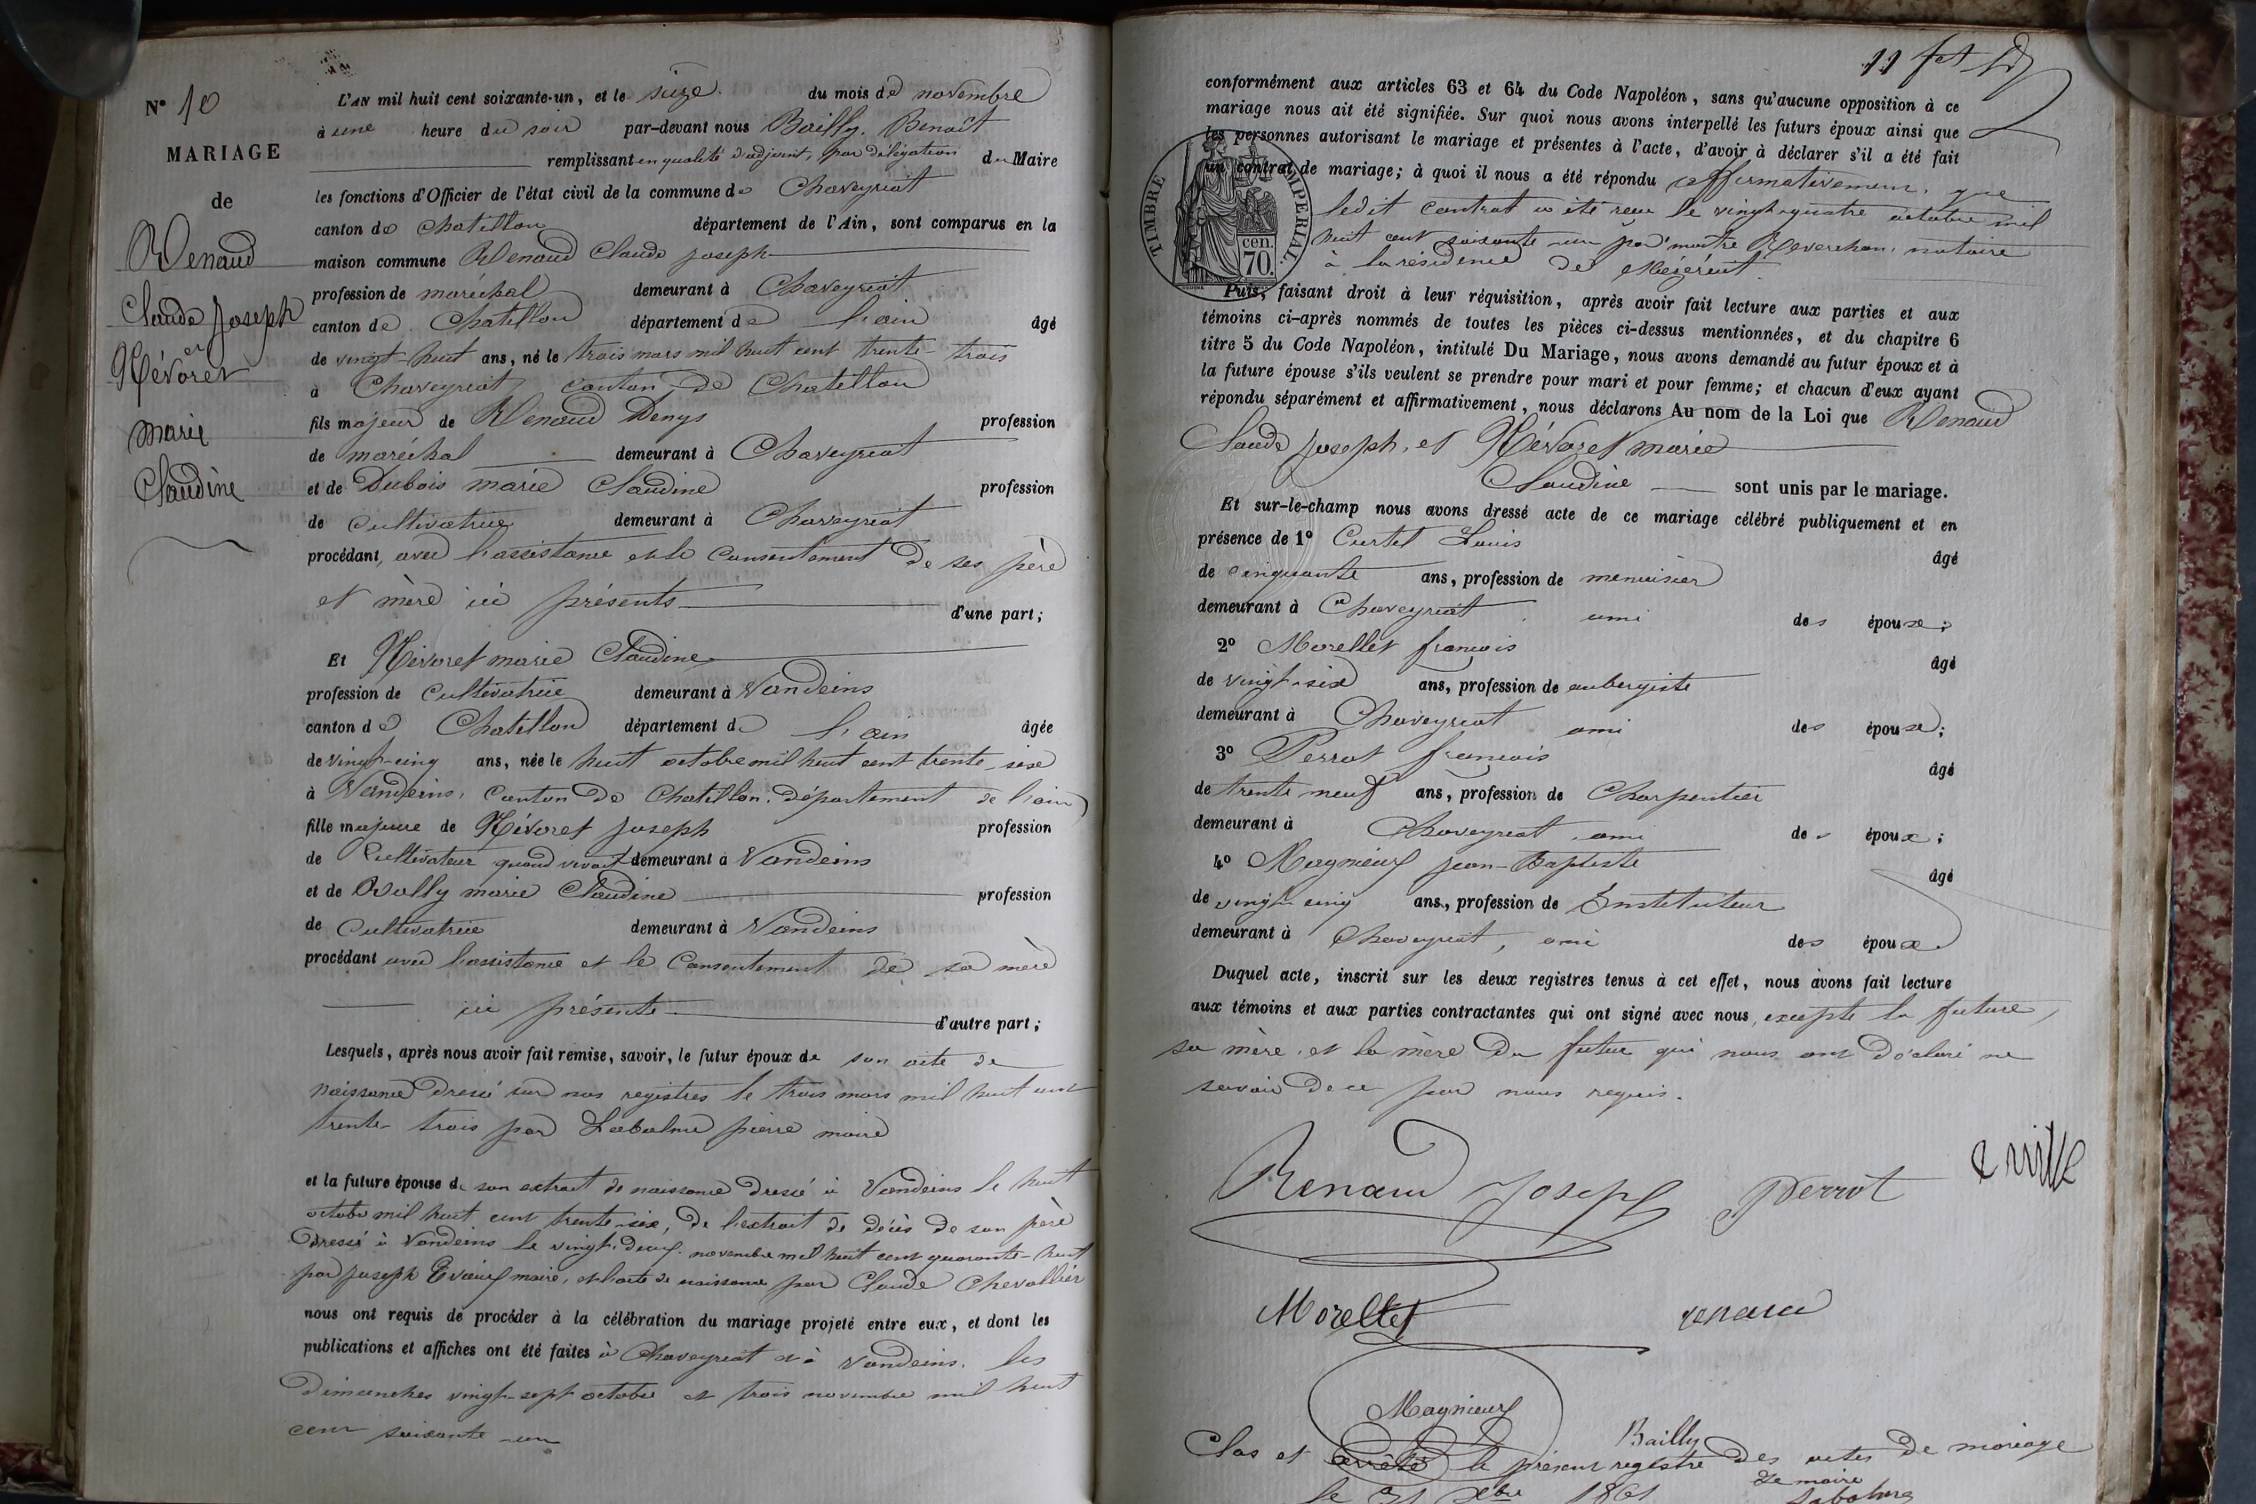 N° 10
MARIAGE
de
Renaud
Claude Joseph
et
Névoret
marie
Claudine
L'AN mil huit cent soixante-un, et le seize du mois de novembre
à une heure du soir par-devant nous Bailly Benoît
remplissant en qualité d'adjoint, par délégation du Maire
les fonctions d'Officier de l'état civil de la commune de Chaveyriat
canton de Chatillon département de l'Ain, sont comparus en la
maison commune Renaud Claude Joseph
profession de maréchal demeurant à Chaveyriat
canton de Chatillon département de l'ain âgé
de vingt-huit ans, né le trois mars mil huit cent trente-trois
à Chaveyriat canton de Chatillon
fils majeur de Renaud Denys profession
de maréchal demeurant à Chaveyriat
et de Dubois marie Claudine profession
de cultivatrice demeurant à Chaveyriat
procédant, avec l'assistance et le Consentement de ses père
et mère ici présents d'une part;
Et Névoret marie Claudine
profession de Cultivatrice demeurant à Vandeins
canton de Chatillon département de l'ain âgée
de vingt-cinq ans, née le huit octobre mil huit cent trente-six
à Vandeins, canton de Chatillon, département de l'ain
fille majeure de Névoret Joseph profession
de Cultivateur quand vivait demeurant à Vandeins
et de marie Claudine profession
de Cultivatrice demeurant à Vandeins
procédant avec l'assistance et le Consentement de sa mère
ici présente d'autre part;
Lesquels, après nous avoir fait remise, savoir, le futur époux de son acte de
naissance dressé sur nos registres le trois mars mil huit cent
trente-trois par Labalme pierre maire
et la future épouse de son extrait de naissance dressé à Vandeins le huit
octobre mil huit cent trente-six, de l'extrait de décès de son père
dressé à Vandeins le vingt-deux novembre mil huit cent quarante-huit
par Joseph maire, et l'acte de naissance par Claude Chevallier
nous ont requis de procéder à la célébration du mariage projeté entre eux, et dont les
publications et affiches ont été faites à Chaveyriat et à Vandeins, les
Dimanches vingt-sept octobre et trois novembre mil huit
cent soixante-un
11
conformément aux articles 63 et 64 du Code Napoléon, sans qu'aucune opposition à ce
mariage nous ait été signifiée. Sur quoi nous avons interpellé les futurs époux ainsi que
les personnes autorisant le mariage et présentes à l'acte, d'avoir à déclarer s'il a été fait
un contrat de mariage; à quoi il nous a été répondu affirmativement, que
ledit contrat a été reçu le vingt-quatre octobre mil
huit cent soixante-un par maître Reverchon, notaire
à la résidence de Mézériat.
TIMBRE IMPÉRIAL
cen.
70.
Puis, faisant droit à leur réquisition, après avoir fait lecture aux parties et aux
témoins ci-après nommés de toutes les pièces ci-dessus mentionnées, et du chapitre 6
titre 5 du Code Napoléon, intitulé Du Mariage, nous avons demandé au futur époux et à
la future épouse s'ils veulent se prendre pour mari et pour femme; et chacun d'eux ayant
répondu séparément et affirmativement, nous déclarons Au nom de la Loi que Renaud
Claude Joseph, et Névoret marie
Claudine sont unis par le mariage.
Et sur-le-champ nous avons dressé acte de ce mariage célébré publiquement et en
présence de 1° Curtet Louis âgé
de cinquante ans, profession de menuisier
demeurant à Chaveyriat ami des époux;
2° Morellet françois âgé
de vingt-six ans, profession de aubergiste
demeurant à Chaveyriat ami des époux;
3° Perrot françois âgé
de trente neuf ans, profession de Charpentier
demeurant à Chaveyriat ami des époux;
4° Magnieux Jean-Baptiste âgé
de vingt-cinq ans, profession de Instituteur
demeurant à Chaveyriat, ami des époux
Duquel acte, inscrit sur les deux registres tenus à cet effet, nous avons fait lecture
aux témoins et aux parties contractantes qui ont signé avec nous, excepté la future,
sa mère, et la mère du futur qui nous ont déclaré ne
savoir de ce par nous requis.
Renaud Joseph Perrot
Morellet renaud
Magnieux
Bailly
Clos et arrêté le présent registre des actes de mariage
le 31 Xbre 1861 Le maire
Labalme